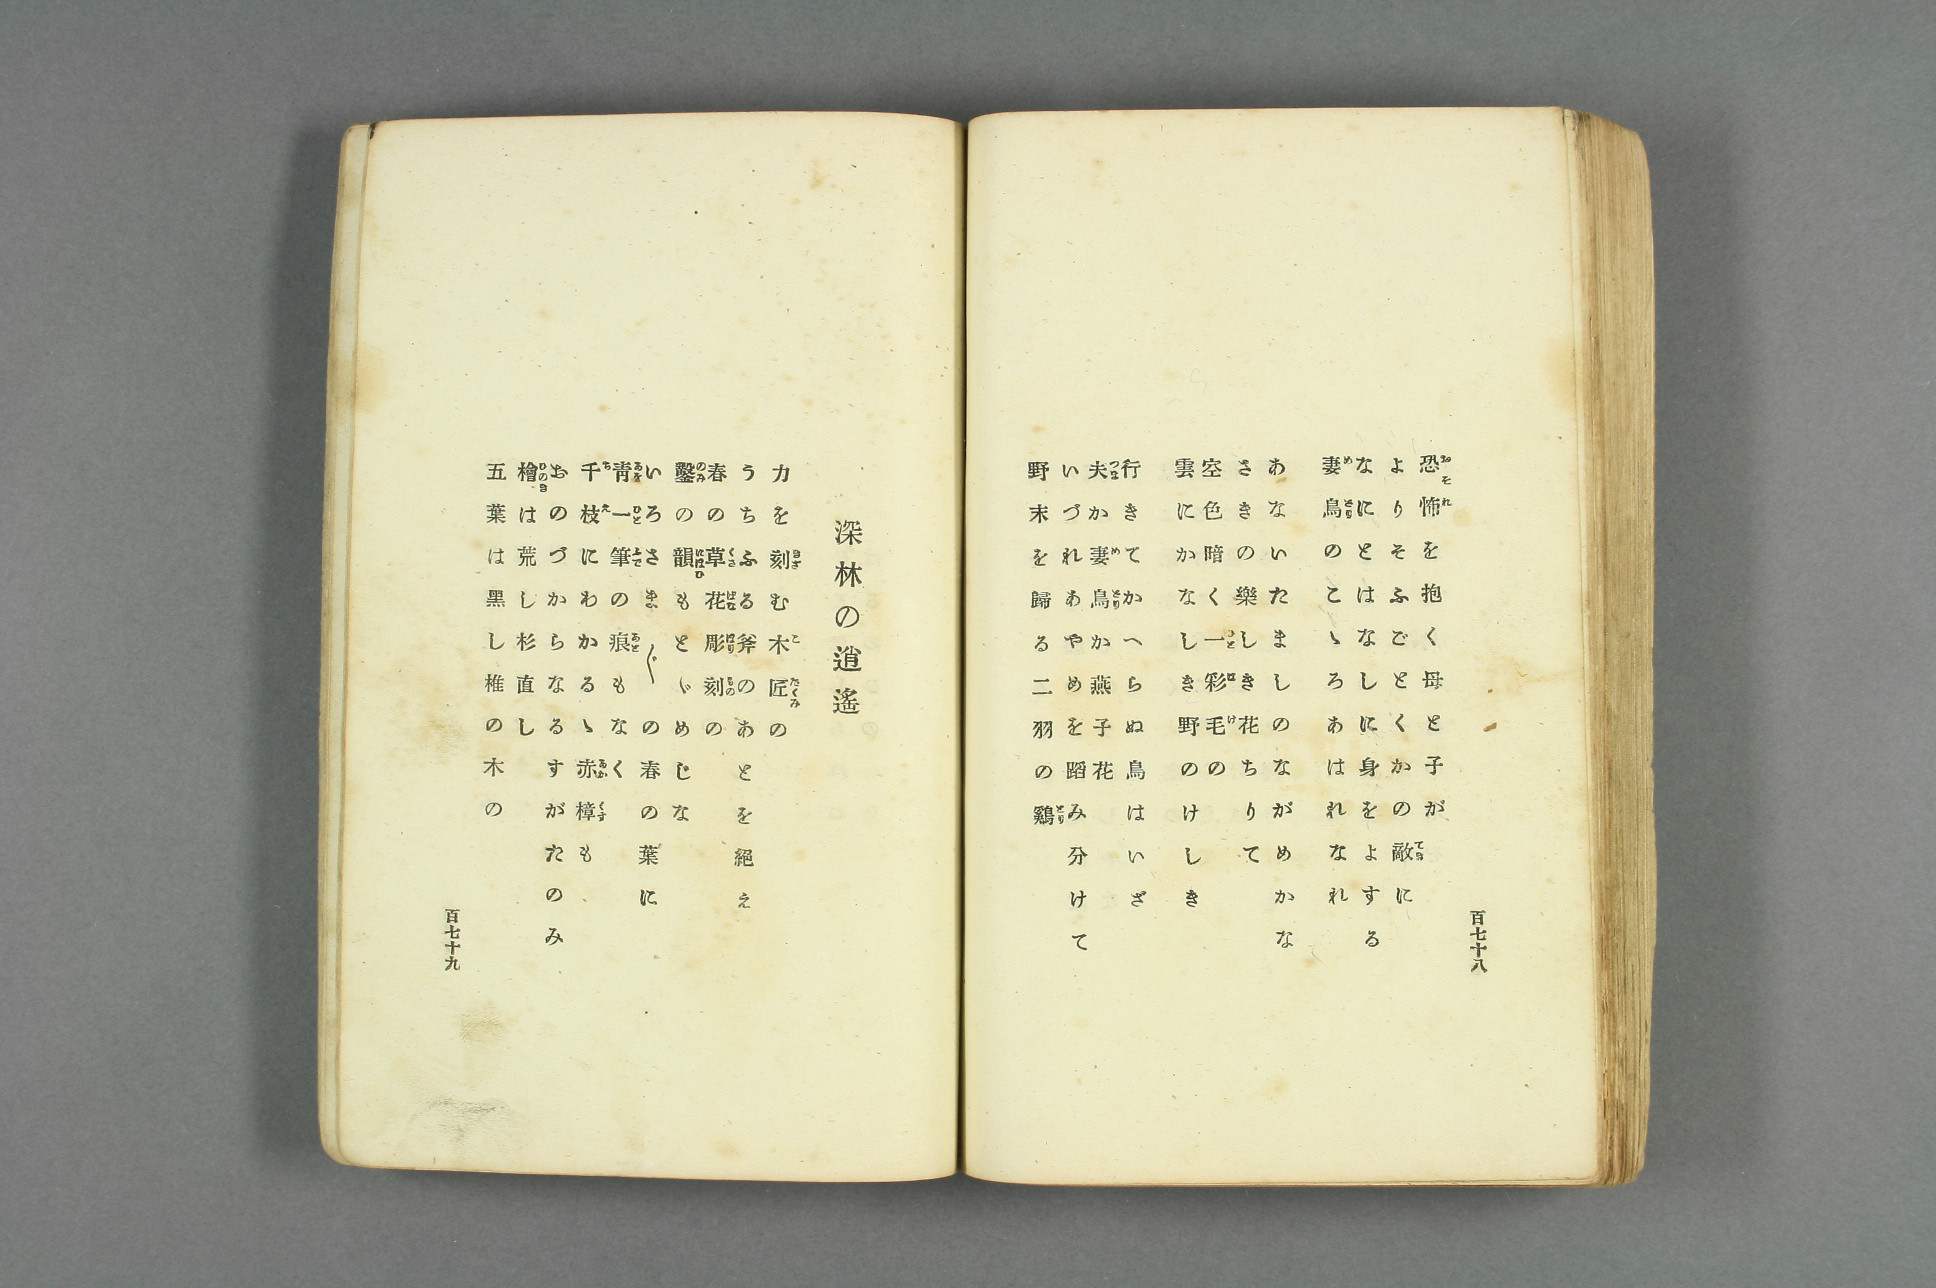 恐怖を抱く母と子が
よりそふごとくかの敵に
なにとはなしに身をよする
妻鳥のこゝろあはれなれ
あないたましのながめかな
さきの樂しき花ちりて
空色暗く一彩毛の
雲にかなしき野のけしき
行きてかへらぬ鳥はいざ
夫か妻鳥か燕子花
いづれあやめを蹈み分けて
野末を歸る二羽の鷄
百七十八
深林の逍遙
力を刻む木匠の
うちふる斧のあとを絕え
春の草花彫刻の
鑿の韻もとゞめじな
いろさま〴〵の春の葉に
靑一筆の痕もなく
千枝にわかるゝ赤樟も
おのづからなるすがたのみ
檜は荒し杉直し
五葉は黑し椎の木の
百七十九